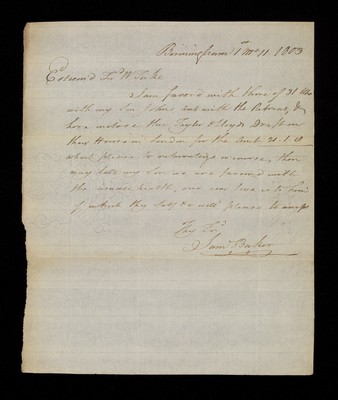 Birmingham 1st Mo 11. 1803
Esteem'd Frd W Tuke
I am favor'd with thine of 31 Ulto
with my Son John's and with the &
here inclose thee Taylor & Lloyds Draft on
their House in London for the Amt 21. 1.
which please to acknowledge in course, thou
may tell my Son we are favored with
the usual health, our love is to him
of which thy self & wife please to accept
Thy Frd
Saml Baker